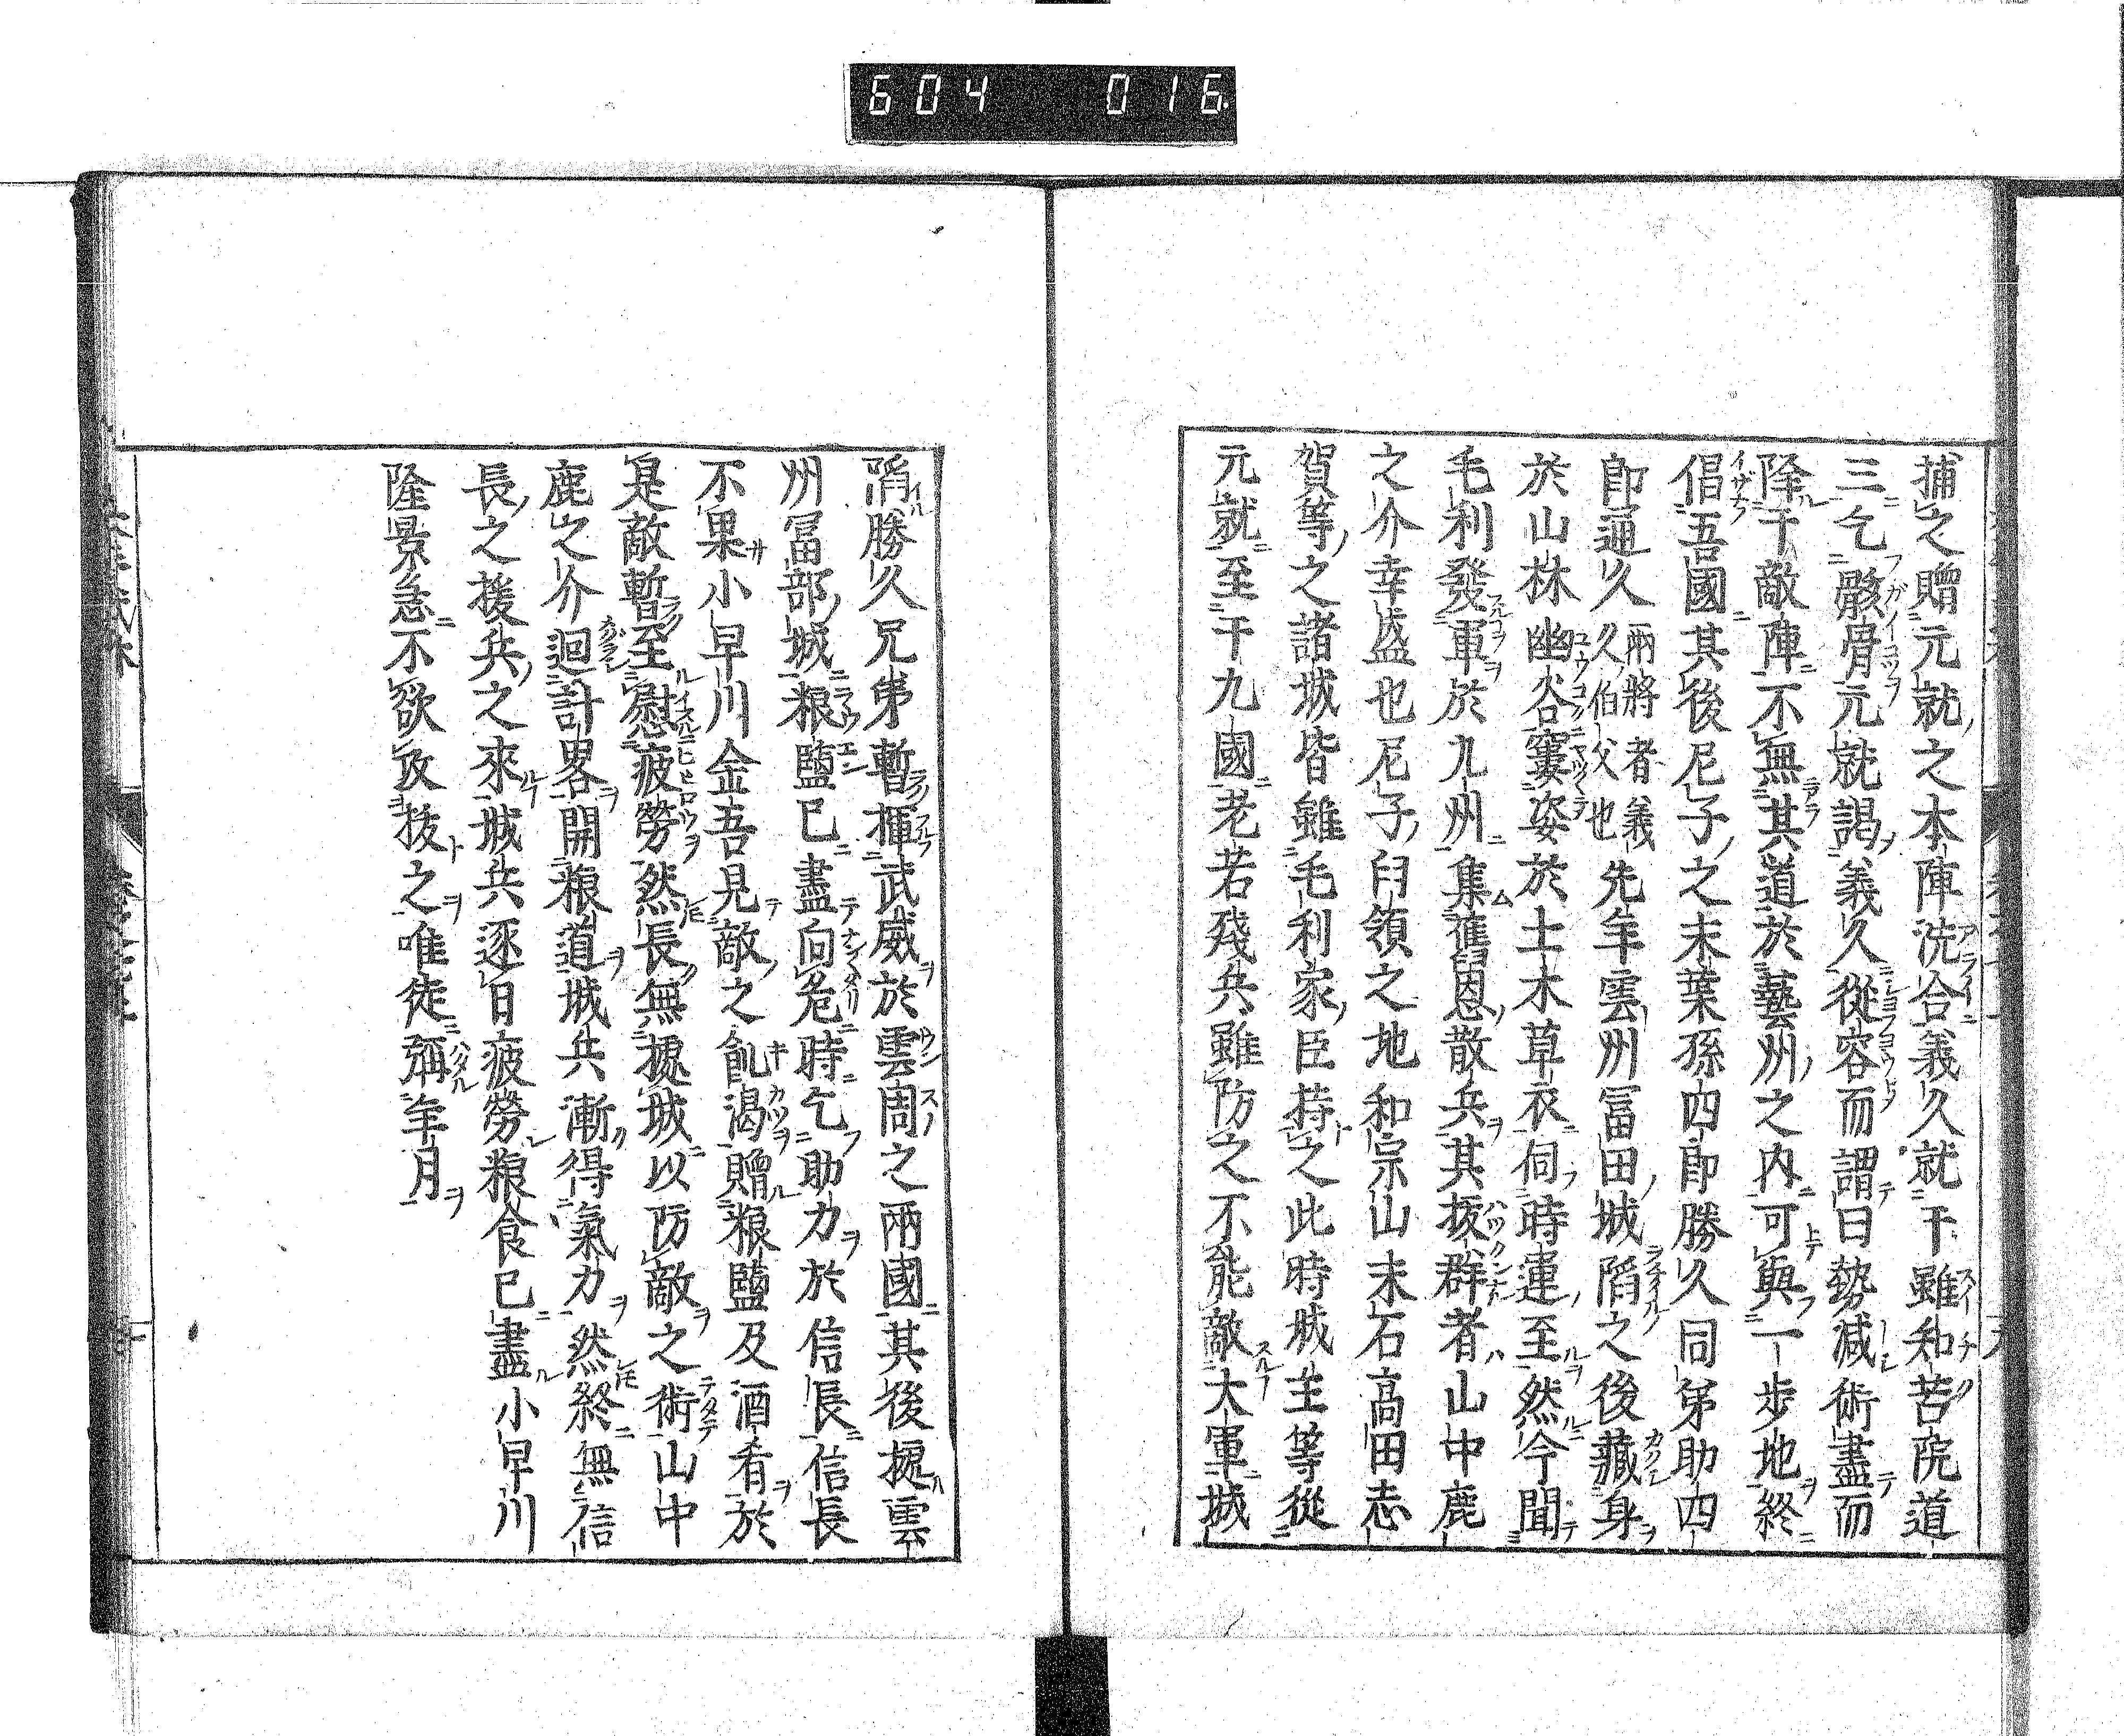 604 016
捕之贈元就之本陣洗合義久就干雖知苦院道
三乞骸骨元就謁義久從容而謂曰勢減術盡而
降干敵陣不無其道於藝州之内可與一歩地終
倡吾國其後尼子之末葉孫四郎勝久同弟助四
郎通久兩將者義久伯父也先年雲州冨田城陷之後藏身
於山林幽谷窶姿於土木草衣伺時運至然今聞
毛利發軍於九州集舊恩散兵其拔群者山中鹿
之介幸盛也尼子舊領之地和宗山末石高田志
賀等之諸城皆雖毛利家臣持之此時城主等從
元就至干九國老若殘兵雖防之不能敵大軍城
陷勝久兄弟暫揮武威於雲周之兩國其後據雲
州冨部城粮鹽已盡向危時乞助力於信長信長
不果小早川金吾見敵之飢渴贈粮鹽及酒肴於
是敵暫至慰疲勞然長無據城以防敵之術山中
鹿之介迴計畧開粮道城兵漸得氣力然終無信
長之援兵之來城兵逐日疲勞粮食已盡小早川
隆景急不欲攻拔之唯徒彌年月